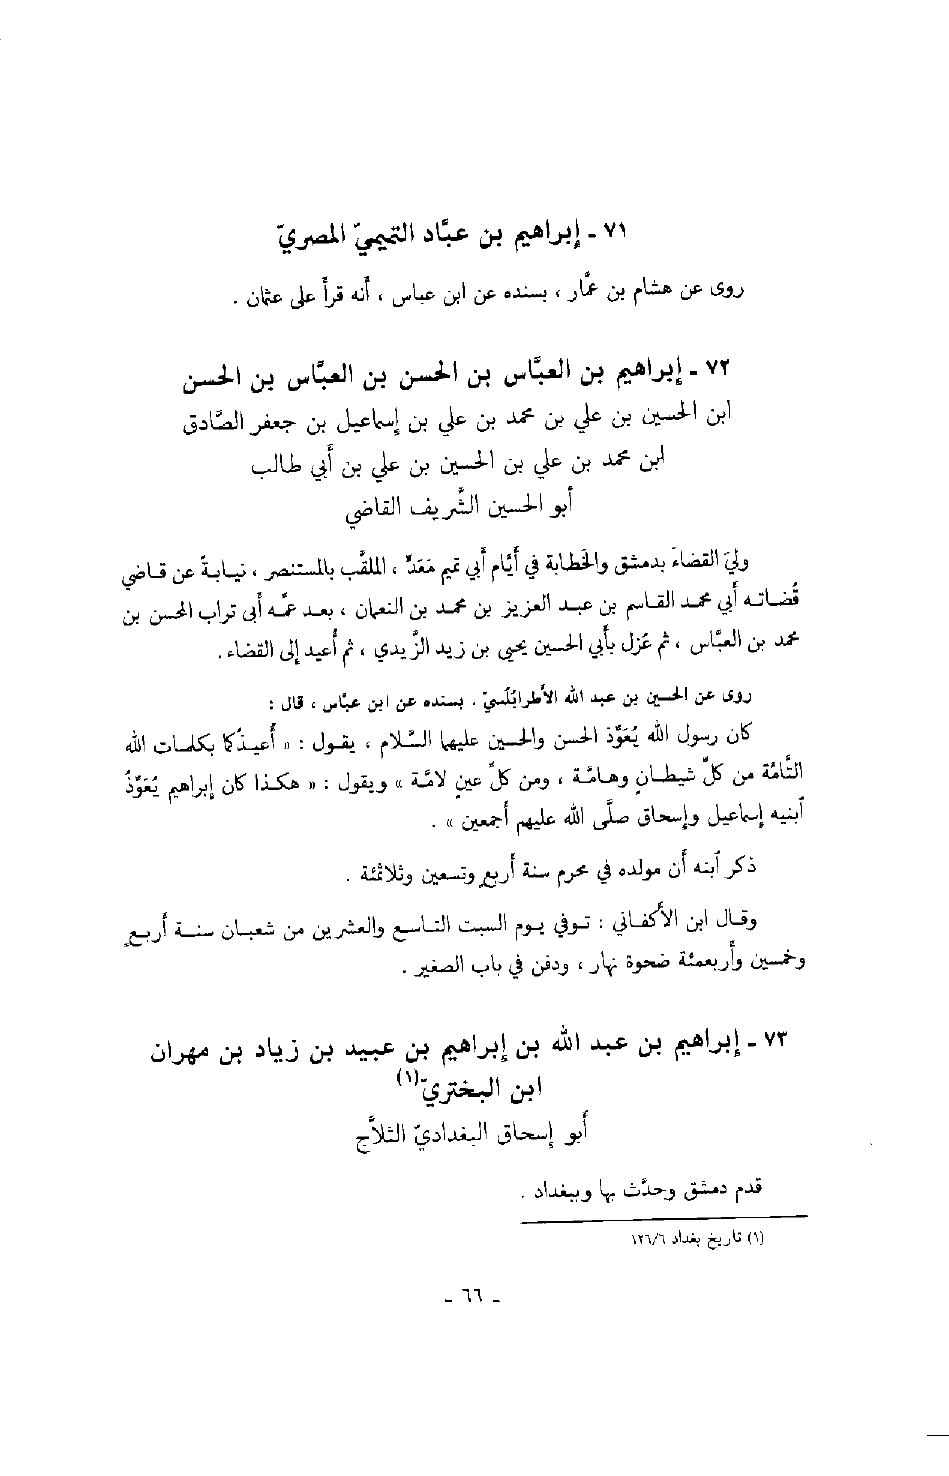 ٧١ - إبراهيم بن عبَّاد التميميّ المصريّ
روى عن هشام بن عمَّار ، بسنده عن ابن عباس ، أنه قرأ على عثمان .
٧٢ - إبراهيم بن العبَّاس بن الحسن بن العبَّاس بن الحسن
ابن الحسين بن علي بن محمد بن علي بن إسماعيل بن جعفر الصَّادق
ابن محمد بن علي بن الحسين بن علي بن أبي طالب
أبو الحسين الشَّريف القاضي
ولِيَ القضاءَ بدمشق والخطابة في أيَّام أبي تميم مَعَدّ ، الملقَّب بالمستنصر ، نيابةً عن قاضي
قُضاته أبي محمد القاسم بن عبد العزيز بن محمد بن النعمان ، بعد عمَّه أبي تراب المحسن بن
محمد بن العبَّاس ، ثم عُزل بأبي الحسين يحيى بن زيد الزَّيدي ، ثم أُعيد إلى القضاء .
روى عن الحسين بن عبد الله الأطرابُلُسيّ . بسنده عن ابن عبَّاس ، قال :
كان رسول الله يُعَوِّذ الحسن والحسين عليهما السَّلام ، يقول : « أُعيذُكما بكلمات الله
التَّامَّة من كلِّ شيطانٍ وهامَّة ، ومن كلِّ عينٍ لامَّة » ويقول : « هكذا كان إبراهيم يُعَوِّذُ
آبنيه إسماعيل وإسحاق صلَّى الله عليهم أجمعين » .
ذكر آبنه أن مولده في محرم سنة أربع وتسعين وثلاثمئة .
وقال ابن الأكفاني : توفي يوم السبت التاسع والعشرين من شعبان سنة أربعٍ
وخمسين وأربعمئة ضحوة نهار ، ودفن في باب الصغير .
٧٣ - إبراهيم بن عبد الله بن إبراهيم بن عبيد بن زياد بن مهران
ابن البختريّ(١)
أبو إسحاق البغداديّ الثلاَّج
قدم دمشق وحدَّث بها وببغداد .
(١) تاريخ بغداد ١٢٦/٦
- ٦٦ -